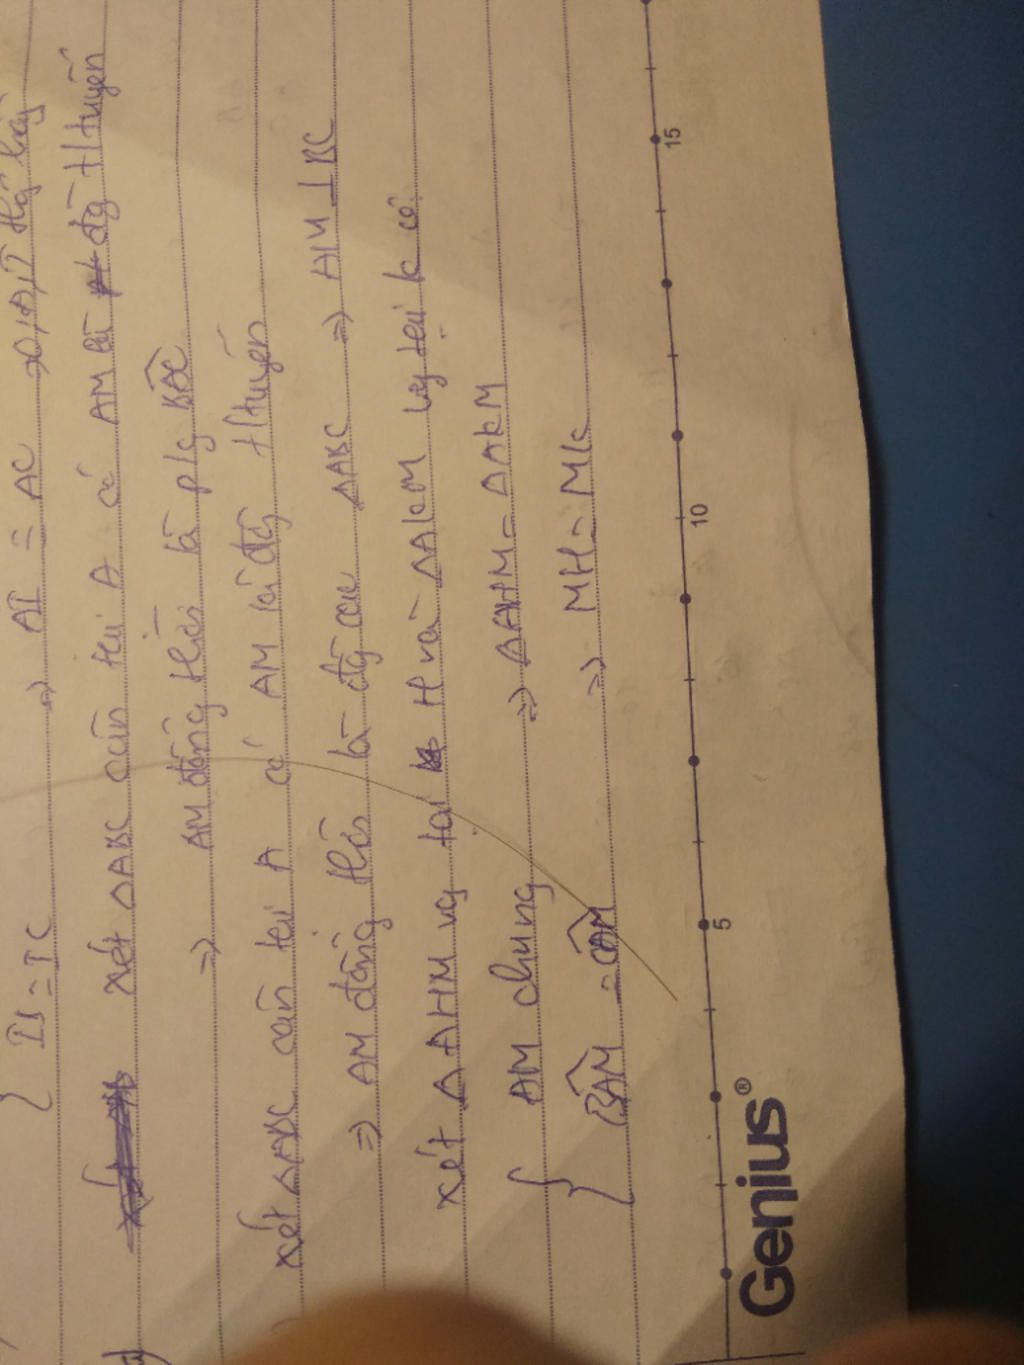 IB = IC => AI = AC => O, A, I thẳng hàng
xét ΔABC cân tại A có AM là đg t/tuyến
=> AM đồng thời là p/g BAC
xét ΔABC cân tại A có AM là đg t/tuyến
=> AM đồng thời là đg cao ΔABC => AM ⊥ BC
xét ΔAHM vg tại H và ΔAKM vg tại K có
{ AM chung => ΔAHM = ΔAKM
BAM = CAM => MH = MK
5 10 15
Genius®